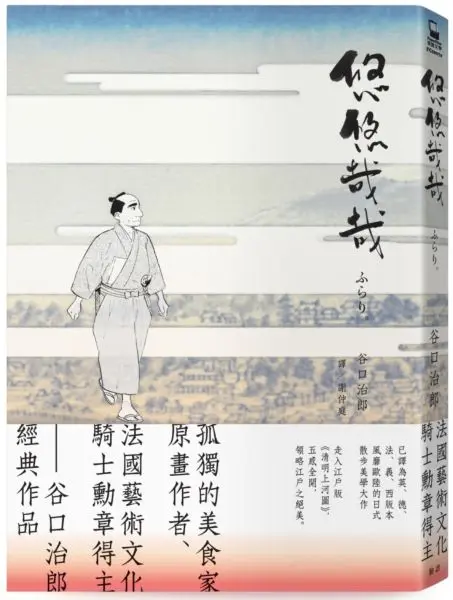 悠悠哉哉
ふらり。
谷口治郎
譯 謝仲庭
已譯為英、德、
法、義、西版本
風靡歐陸的日式
散步美學大作
走入江戶版
《清明上河圖》,
五感全開,
領略江戶之絕美。
孤獨的美食家
原畫作者、
法國藝術文化
騎士勳章得主
——谷口治郎
經典作品
悠悠哉哉
ふらり。
谷口治郎
法國藝術文化
騎士勳章得主